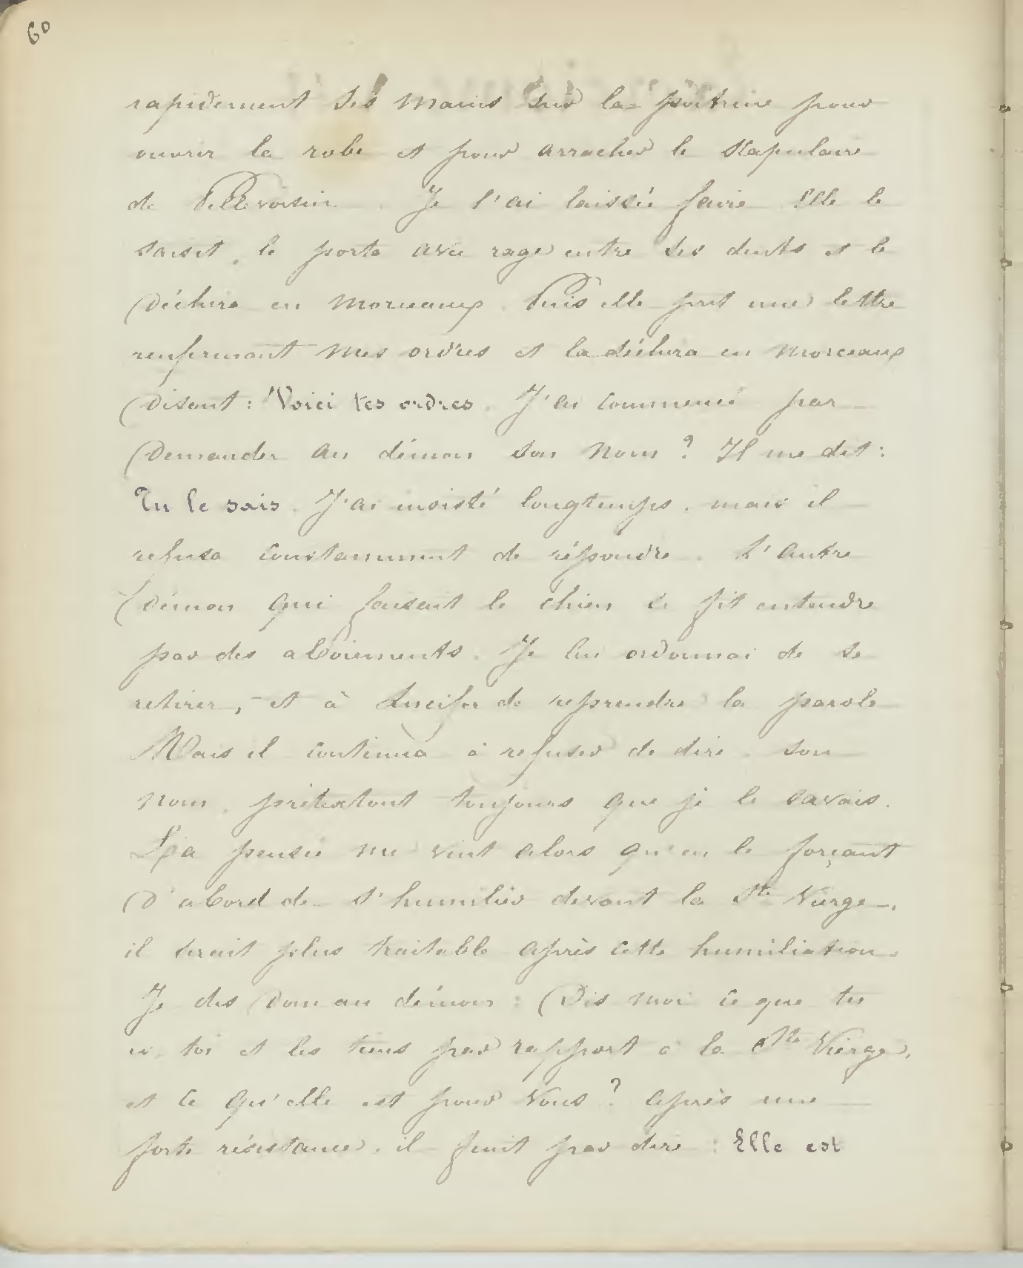 60
rapidement ses mains sur la poitrine pour
ouvrir la robe et pour arracher le scapulaire
de Pellevoisin. Je l'ai laissée faire. Elle le
saisit, le porta avec rage entre ses dents et le
déchira en morceaux. Puis elle prit une lettre
renfermant mes ordres et la déchira en morceaux
disant : Voici tes ordres. J'ai commencé par
demander au démon son nom ? Il me dit :
Tu le sais. J'ai insisté longtemps, mais il
refusa constamment de répondre. L'autre
démon qui faisait le chien se fit entendre
par des aboiements. Je lui ordonnai de se
retirer, et à Lucifer de reprendre la parole
Mais il continua à refuser de dire son
nom, prétextant toujours que je le savais.
La pensée me vint alors qu'en le forçant
d'abord de s'humilier devant la Ste Vierge,
il serait plus traitable après cette humiliation.
Je dis donc au démon : Dis moi ce que tu
es, toi et les tiens par rapport à la Ste Vierge,
et ce qu'elle est pour vous ? Après une
forte résistance, il finit par dire : Elle est